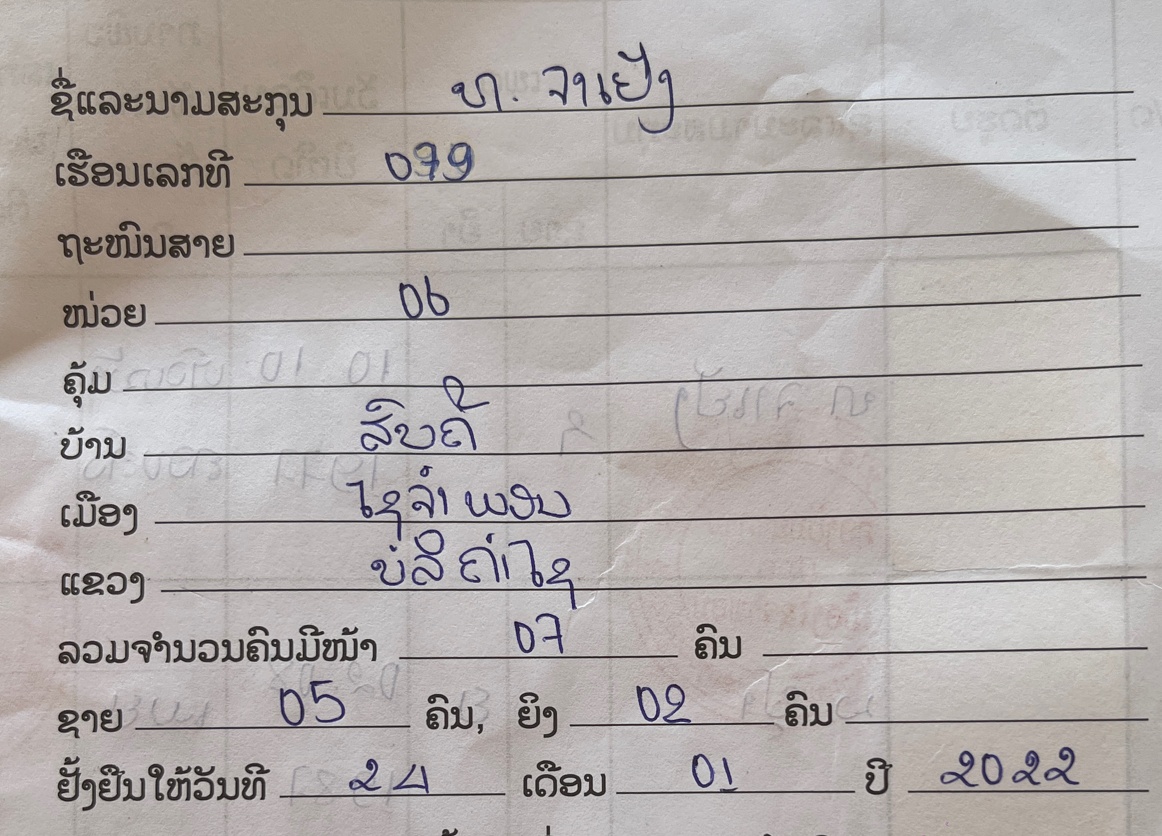 ຊື່ແລະນາມສະກຸນ ທ. ຈາເຢັງ
ເຮືອນເລກທີ 079
ຖະໜົນສາຍ
ໜ່ວຍ 06
ຄຸ້ມ
ບ້ານ ສົບຄີ້
ເມືອງ ໄຊຈຳພອນ
ແຂວງ ບໍລິຄຳໄຊ
ລວມຈຳນວນຄົນມີໜ້າ 07 ຄົນ
ຊາຍ 05 ຄົນ, ຍິງ 02 ຄົນ
ຢັ້ງຢືນໃຫ້ວັນທີ 24 ເດືອນ 01 ປີ 2022